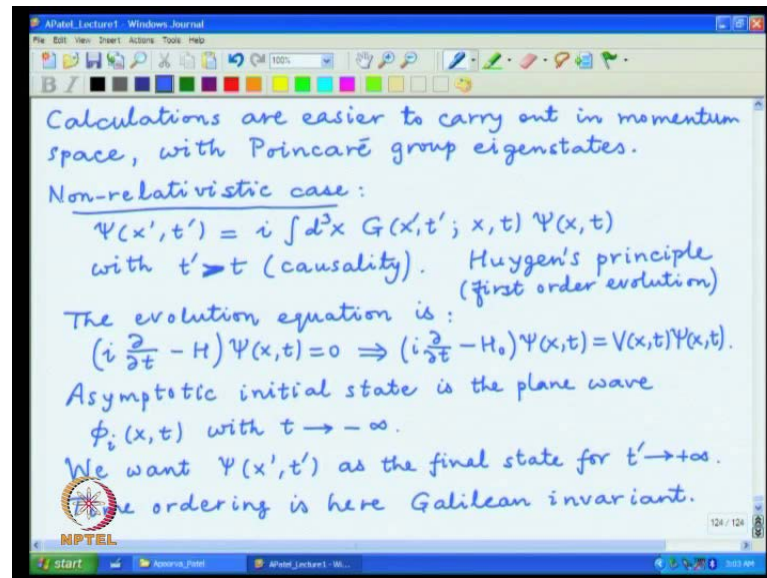 APatel_Lecture1 - Windows Journal
File Edit View Insert Actions Tools Help
100%
B I
Calculations are easier to carry out in momentum
space, with Poincaré group eigenstates.
Non-relativistic case:
Ψ(x',t') = i ∫d³x G(x',t'; x,t) Ψ(x,t)
with t' > t (causality). Huygen's principle
(first order evolution)
The evolution equation is:
(i ∂/∂t - H) Ψ(x,t) = 0 ⇒ (i ∂/∂t - H₀) Ψ(x,t) = V(x,t)Ψ(x,t).
Asymptotic initial state is the plane wave
ϕᵢ(x,t) with t → -∞.
We want Ψ(x',t') as the final state for t' → +∞.
Time ordering is here Galilean invariant.
124 / 124
NPTEL
start Apoorva_Patel APatel_Lecture1 - Wi... 3:03 AM